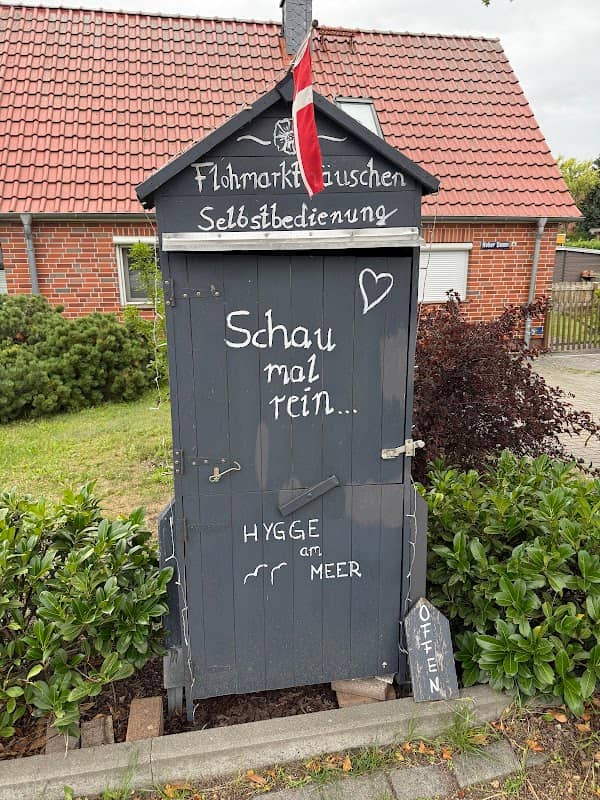 Flohmarkthäuschen
Selbstbedienung
Schau
mal
rein...
HYGGE
am
MEER
ÖFFEN